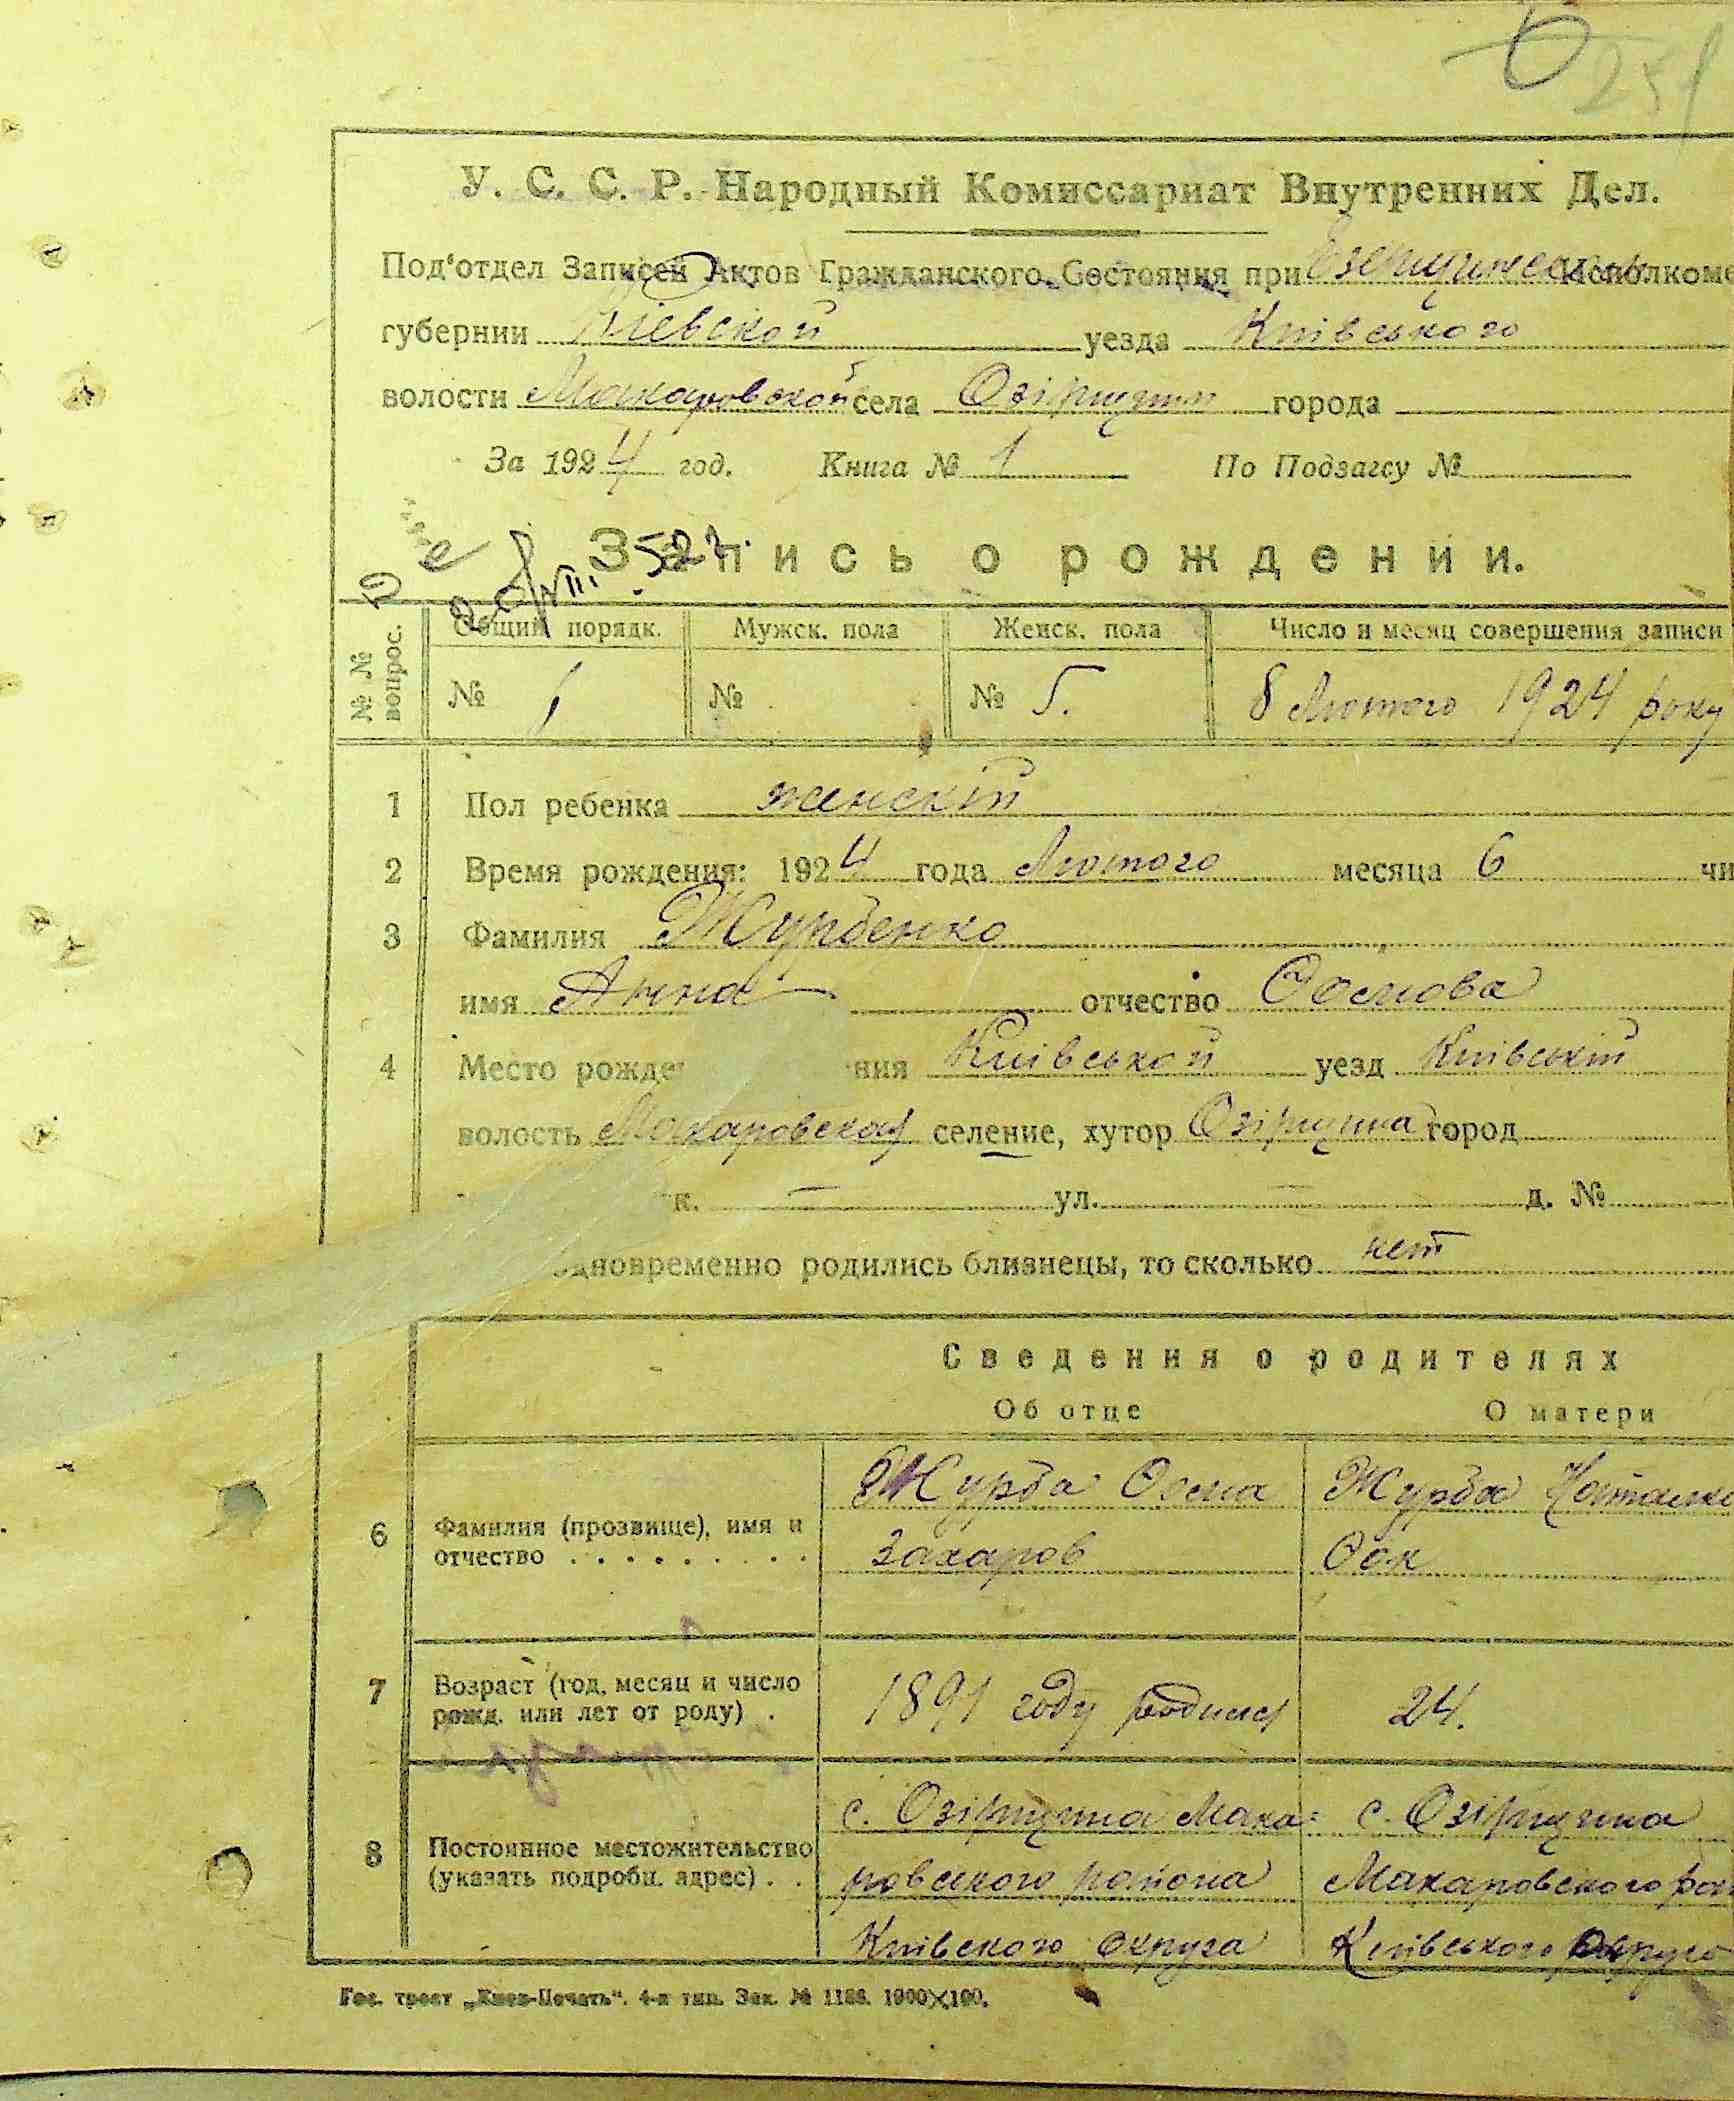 251
У. С. С. Р. Народный Комиссариат Внутренних Дел.
Под'отдел Записей Актов Гражданского Состояния при Исполкоме
губернии Киевской уезда Київського
волости Макаровской села Озірщини города
За 1924 год. Книга № 1 По Подзагсу №
Запись о рождении.
№ № вопрос. Общий порядк. Мужск. пола Женск. пола Число и месяц совершения записи
№ № № 5. 8 Лютого 1924 року
1 Пол ребенка женскій
2 Время рождения: 1924 года Лютого месяца 6 чи
3 Фамилия Журбенко
имя Анна отчество
4 Место рожде ния Київськой уезд Київській
волость Макаровская селение, хутор Озірщина город
к. — ул. — д. №
одновременно родились близнецы, то сколько нет
Сведения о родителях
Об отце О матери
Журба Журба
6 Фамилия (прозвище), имя и
отчество . . . . . . . . . Захаров
7 Возраст (год, месяц и число
рожд. или лет от роду) . 1891 году родился 24.
с. Озірщина Мака= с. Озірщина
8 Постоянное местожительство
(указать подробн. адрес) . . ровского района Макаровского рай
Київского округа Київського округа
Гос. трест „Киев-Печать". 4-я тип. Зак. № 1186. 1000×100.